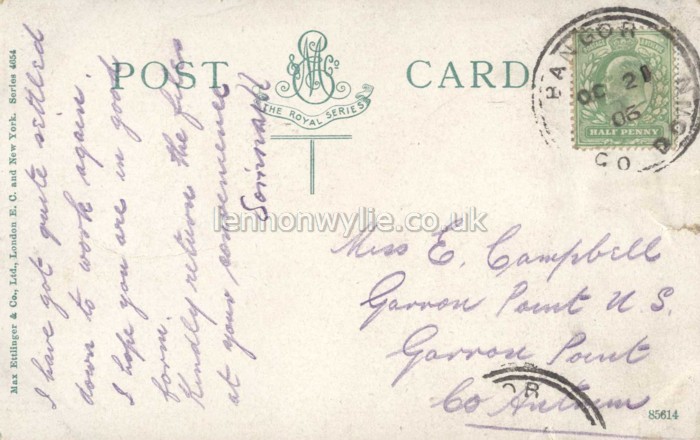 POST CARD
THE ROYAL SERIES
Max Ettlinger & Co., Ltd., London E. C. and New York. Series 4654
I have got quite settled
down to work again.
I hope you are in good
form.
Kindly return the films
at your convenience
BANGOR
OC 21
05
CO DOWN
HALF PENNY
lennonwylie.co.uk
Miss E. Campbell
Garron Point N.S.
Garron Point
Co Antrim
OR
85614